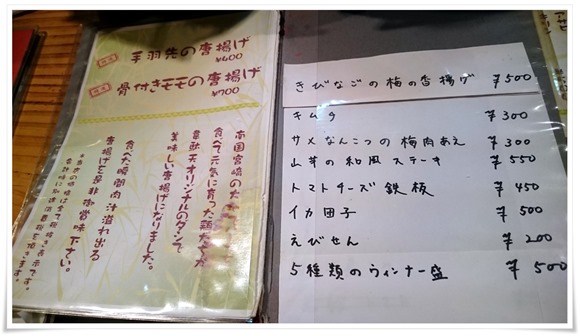 手羽先の唐揚げ
¥400
骨付きモモの唐揚げ
¥700
南国宮崎の大
食べて元気に育った頭たてが
オリジナルのタレで
美味しい唐揚げになりました。
食べた瞬間肉汁溢れ出る
唐揚げを是非御賞味下さい。
きびなごの梅の香揚げ ¥500
キムチ ¥300
サメなんこつの梅肉あえ ¥300
山芋の和風ステーキ ¥550
トマトチーズ鉄板 ¥450
イカ団子 ¥500
えびせん ¥200
5種類のウィンナー盛 ¥500